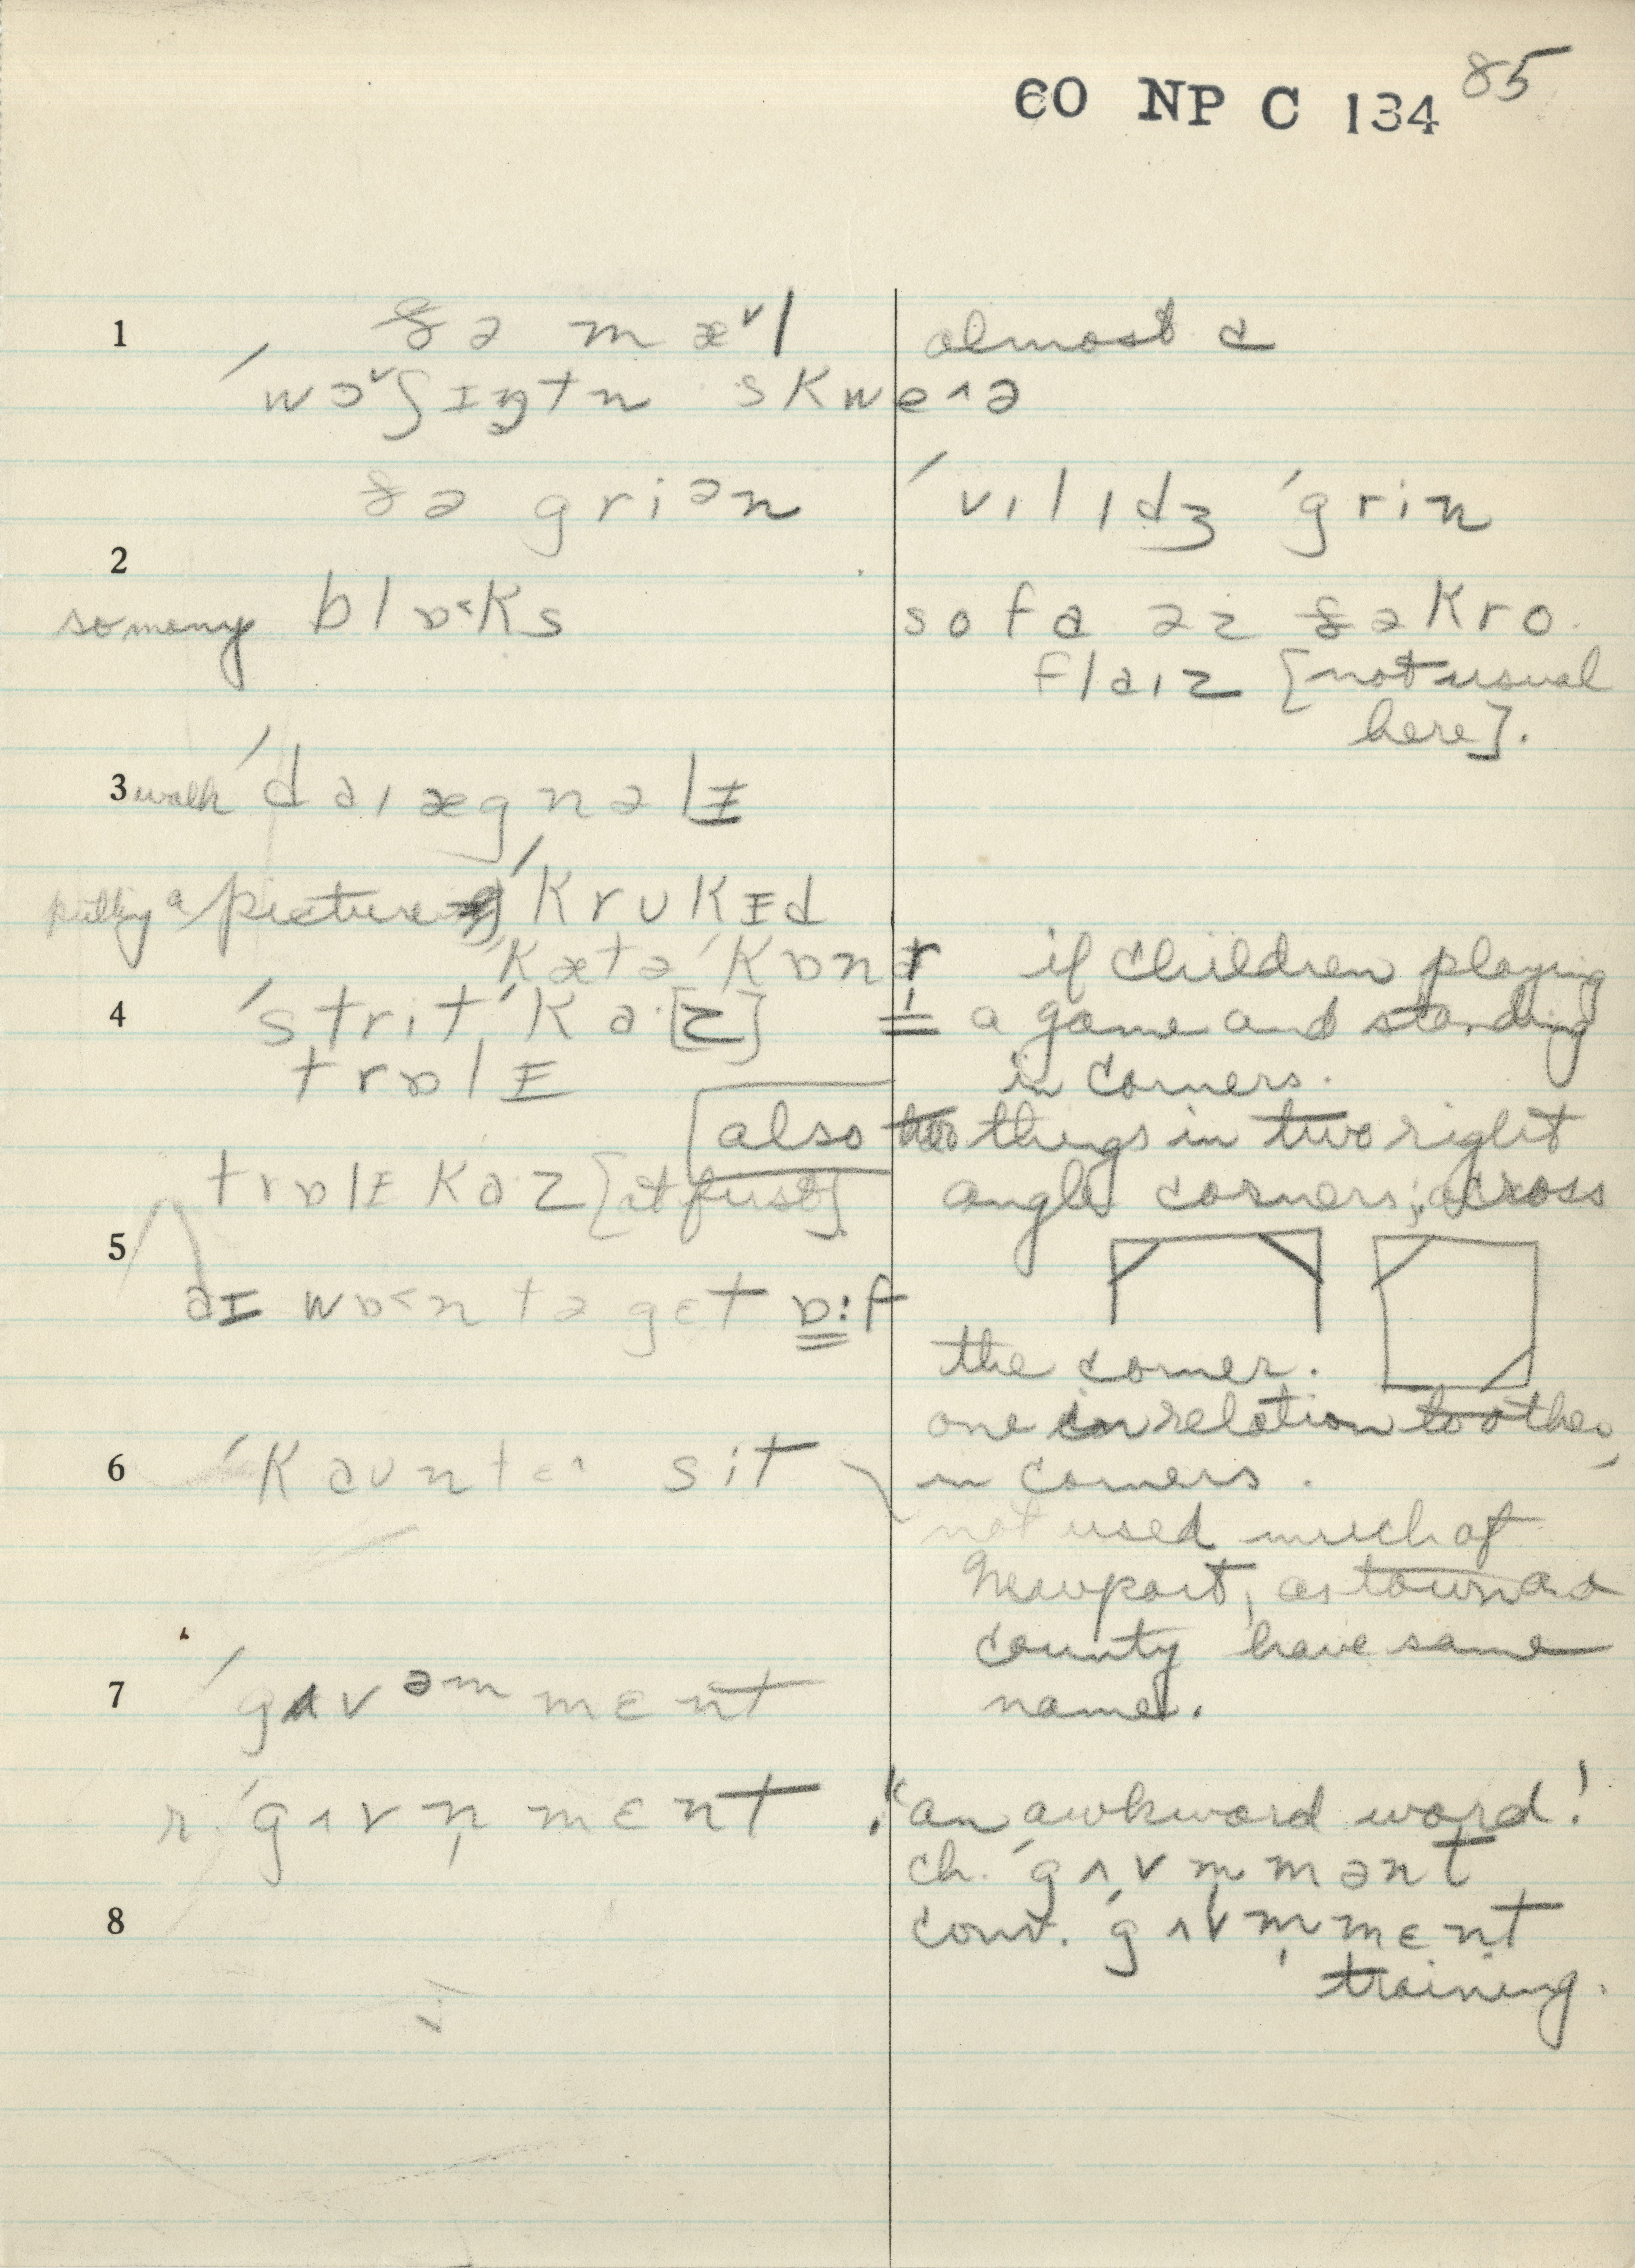 60 NP C 134 85
1 ðə mæ˅l almost a
ˈwɔ˅ʃɪŋtn̩ skweʌə
ðə griən ˈvɪlɪdʒ ˈgrin
2
so many blɒ˂ks so fa əz ðə kro
flaɪz [not usual
here].
3 walk ˈdaɪægnəlɪ
a picture ˈkrʊkɪd
ˈkætə ˈkɒnər if children playing
4 ˈstritˈka·[z] a game and standing
trɒlɪ in corners.
also things in two right
trɒlɪ kaz [at first] angle corners; across
5
aɪ wɒ˂n tə gɛt ɒ:f
the corner.
one in relation to other,
6 ˈkaʊntɛʌ sit in corners.
not used much of
Newport, as town and
county have same
name.
7 ˈgʌvəmmɛnt
r. ˈgʌvn̩mɛnt "an awkward word!
ch. ˈgʌvm̩mənt
8 conv. ˈgʌvm̩mɛnt
training.